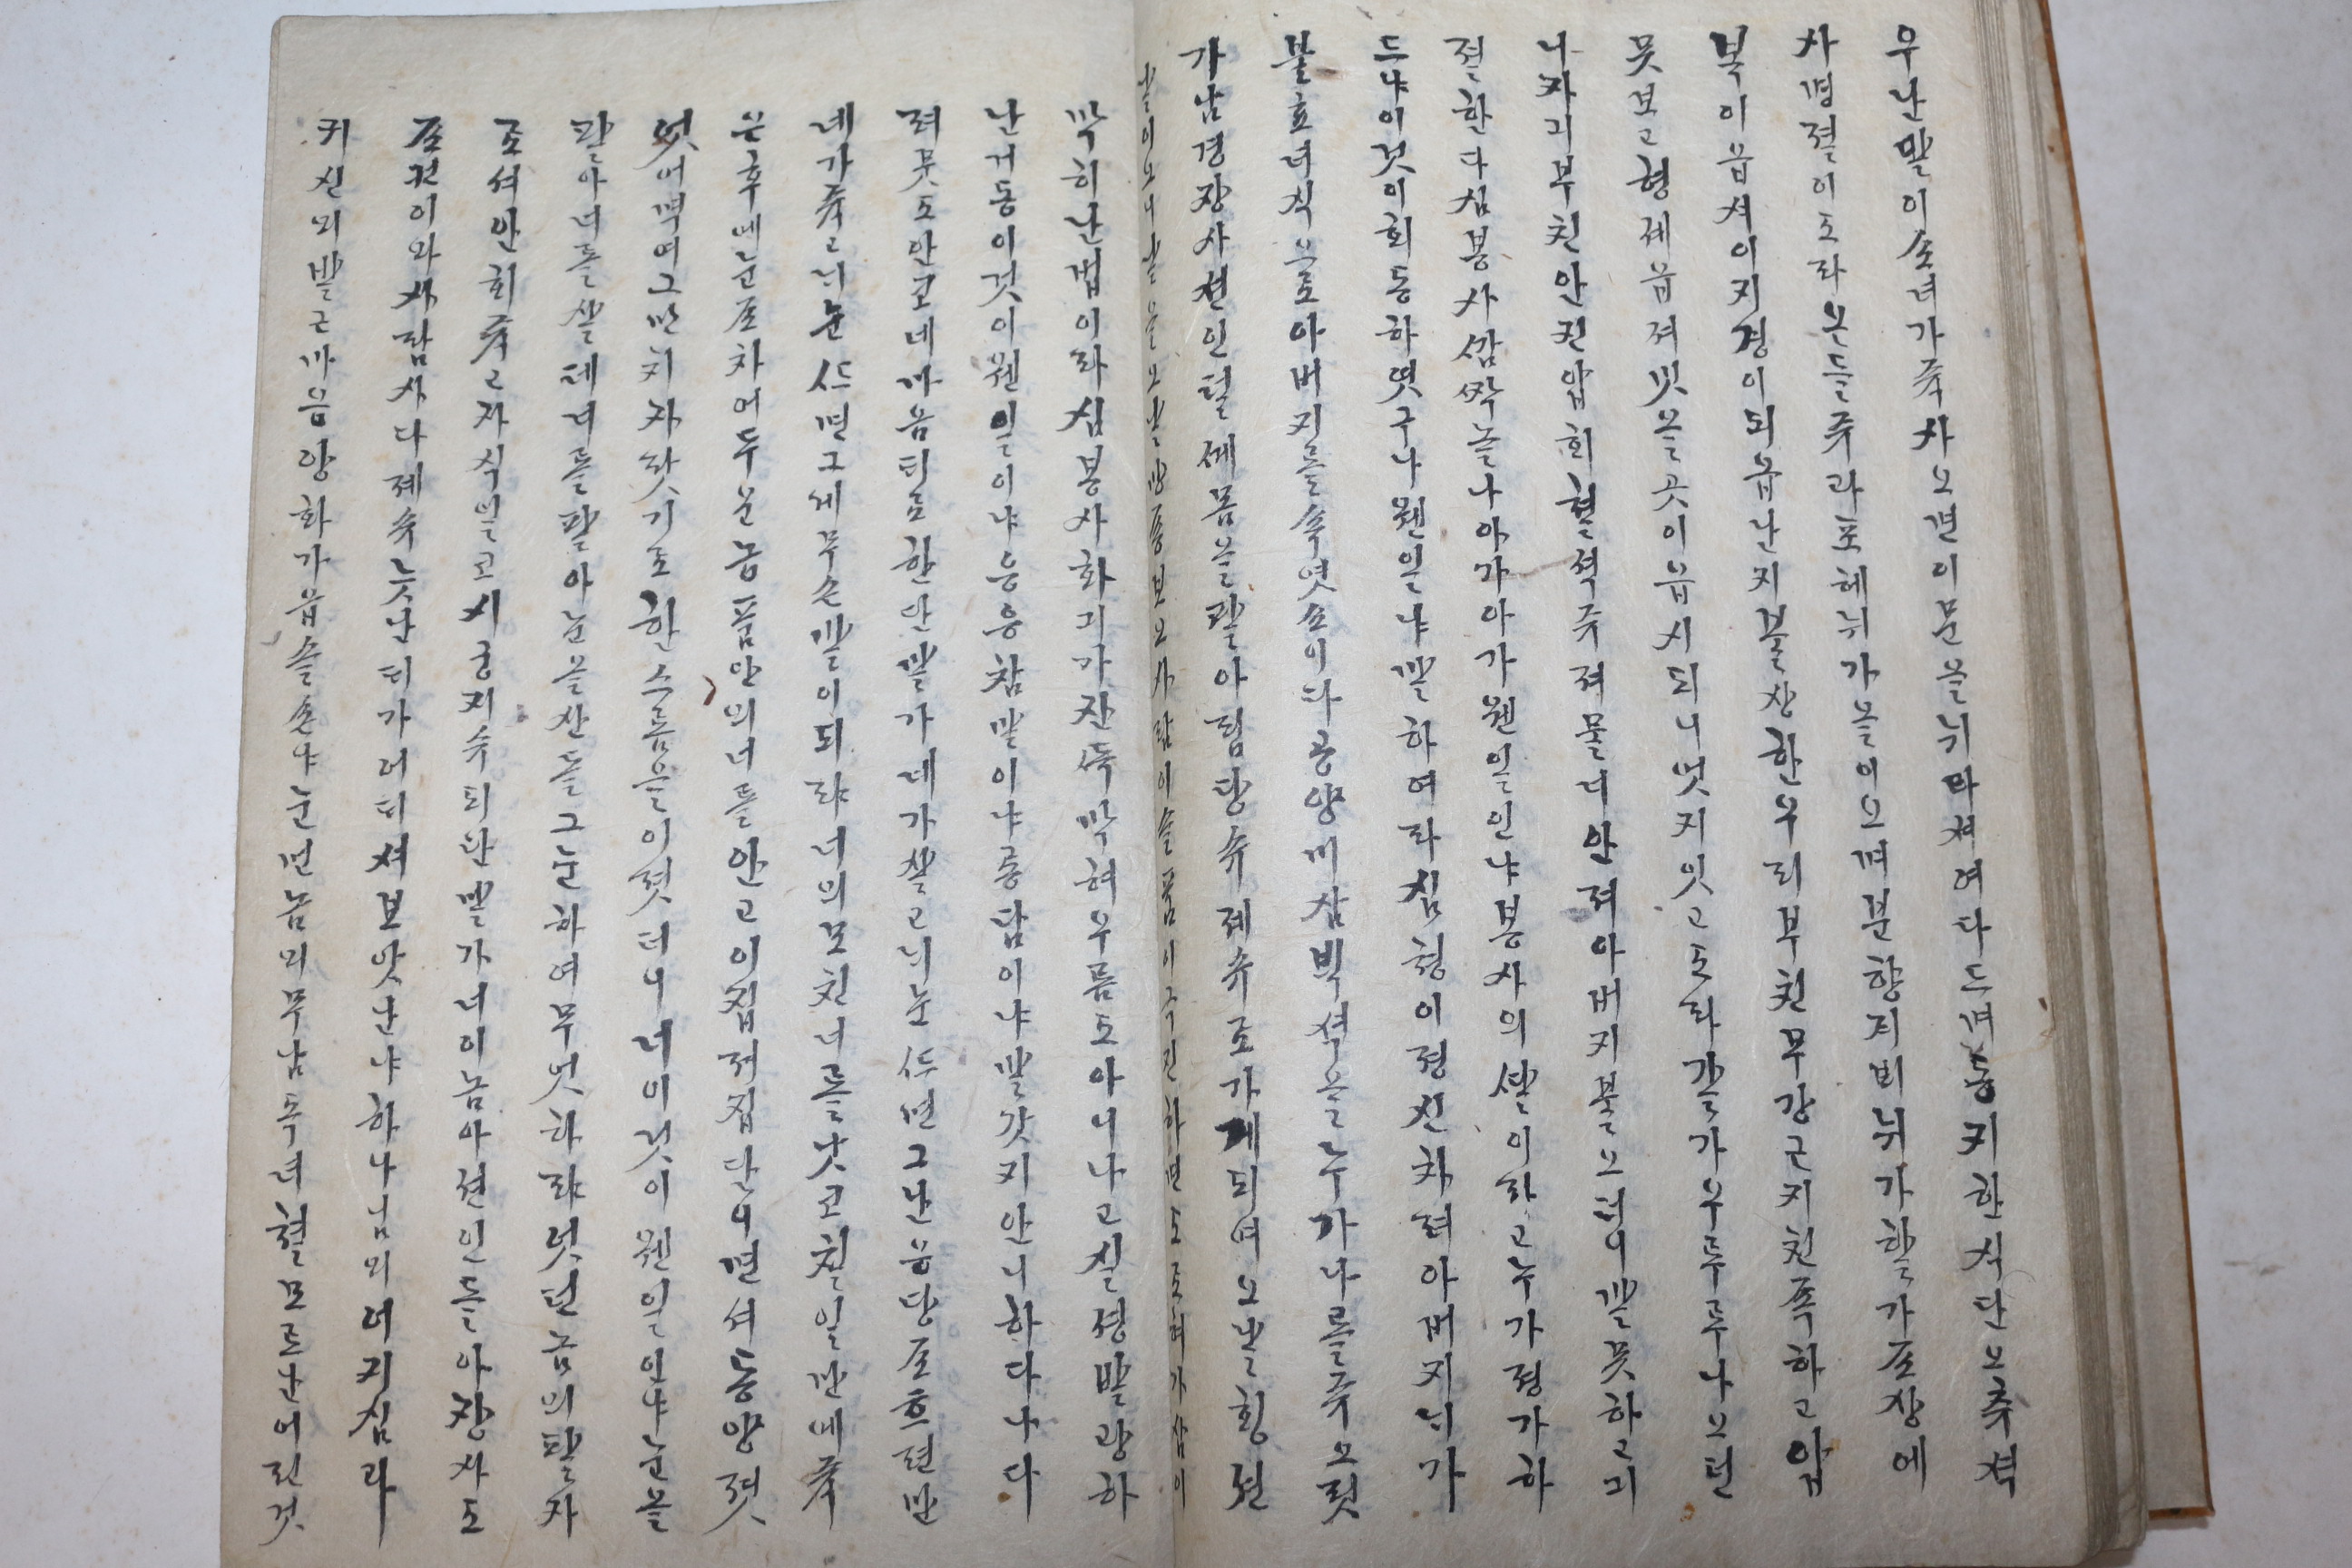 우난말이소녀가쥭사오면이문을뉘라셔여다드며동지한식단오츄셕
사명졀이도라온들쥬과포혜뉘가놀의오며분향지비뉘가할가조상에
복이읍셔이지경이되읍난지불상한우리부친무강근지친족하고압
못보고형제읍셔밋을곳이읍시되니엇지잇고도라갈가우두루나오던
나자긔부친안진압희혈셕쥬져물너안져아버지불으더니말못하고긔
졀한다심봉사깜짝놀나아가아가웬일인냐봉사의딸이라고누가졍가하
드냐이것이회동하엿구나웬일냐말하여라심쳥이졍신차려아버지늬가
불효녀식으로아버지를속엿소이다공양미삼빅셕을누가나를쥬오릿
가남경장사션인털게몸을팔아림당슈졔슈로가게되여오날힝션
날이오니날을오날망종보오사람이슬품이극진하면도로혀가삼이
막히난법이라심봉사화긔가잔득막혀우름도아니나고실셩발광하
난거동이것이웬일이냐응응참말이냐롱담이냐말갓지안니하다나다
려뭇도안코네마음디로한단말가네가살고늬눈쓰면그난응당조흐련만
네가쥭고늬눈쓰면그세무슨말이되랴너의모친너를낫코칠일만에쥭
은후에눈조차어두눈놈품안의너를안고이집져집단니면셔동양졋
엇어먹여그만치자랏기로한수름을이졋더니너이것이웬일인냐눈을
팔아너를살테너를팔아눈을산들그눈하여무엇하랴엇던놈의팔자
조셔안희쥭고자식일코사궁지슈되단말가너이놈아션인들아장사도
조컨이와사람사다졔슈늣난티가어디셔보앗난냐하나님의어지심과
귀신의발근마음앙화가읍슬손야눈먼놈의무남독녀철모르난어린것